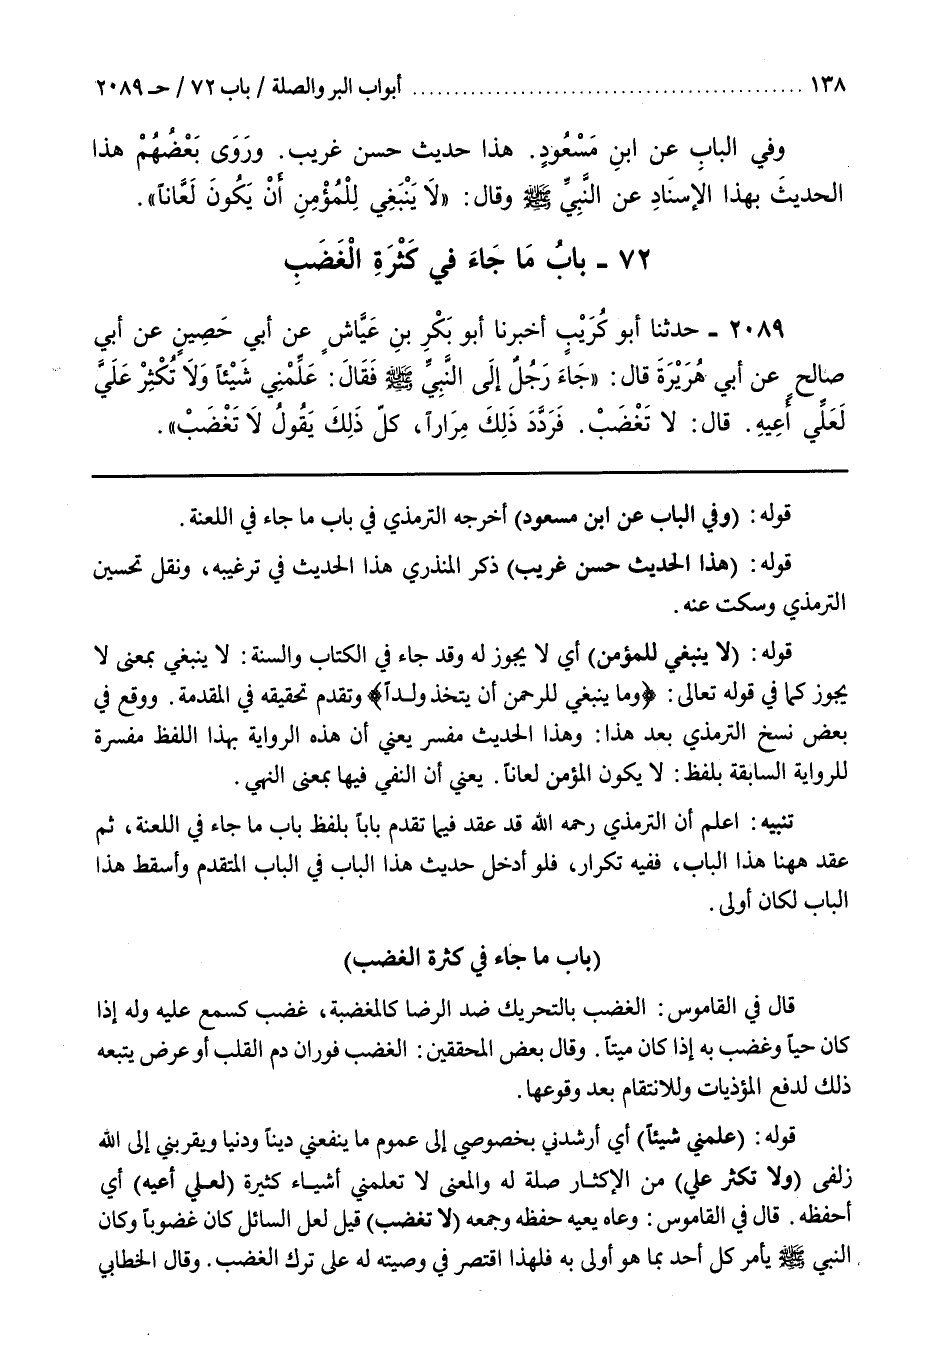 ١٣٨ ........................................ أبواب البر والصلة / باب ٧٢ / حـ ٢٠٨٩
وفي البابِ عن ابنِ مَسْعُودٍ. هذا حديث حسن غريب. ورَوَى بَعْضُهُمْ هذا
الحديثَ بهذا الإسنَادِ عن النَّبِيِّ ﷺ وقال: «لَا يَنْبَغِي لِلْمُؤْمِنِ أَنْ يَكُونَ لَعَّاناً».
٧٢ - بابُ مَا جَاءَ في كَثْرَةِ الْغَضَبِ
٢٠٨٩ - حدثنا أبو كُرَيْبٍ أخبرنا أبو بَكْرِ بنِ عَيَّاشٍ عن أبي حَصِينٍ عن أبي
صالحٍ عن أبي هُرَيْرَةَ قال: «جَاءَ رَجُلٌ إلَى النَّبِيِّ ﷺ فَقَالَ: عَلِّمْنِي شَيْئاً وَلَا تُكْثِرْ عَلَيَّ
لَعَلِّي أَعِيهِ. قال: لا تَغْضَبْ. فَرَدَّدَ ذَلِكَ مِرَاراً، كلّ ذَلِكَ يَقُولُ لَا تَغْضَبْ».
قوله: (وفي الباب عن ابن مسعود) أخرجه الترمذي في باب ما جاء في اللعنة.
قوله: (هذا الحديث حسن غريب) ذكر المنذري هذا الحديث في ترغيبه، ونقل تحسين
الترمذي وسكت عنه.
قوله: (لا ينبغي للمؤمن) أي لا يجوز له وقد جاء في الكتاب والسنة: لا ينبغي بمعنى لا
يجوز كما في قوله تعالى: ﴿وما ينبغي للرحمن أن يتخذ ولـداً﴾ وتقدم تحقيقه في المقدمة. ووقع في
بعض نسخ الترمذي بعد هذا: وهذا الحديث مفسر يعني أن هذه الرواية بهذا اللفظ مفسرة
للرواية السابقة بلفظ: لا يكون المؤمن لعاناً. يعني أن النفي فيها بمعنى النهي.
تنبيه: اعلم أن الترمذي رحمه الله قد عقد فيما تقدم باباً بلفظ باب ما جاء في اللعنة، ثم
عقد ههنا هذا الباب، ففيه تكرار، فلو أدخل حديث هذا الباب في الباب المتقدم وأسقط هذا
الباب لكان أولى.
(باب ما جاء في كثرة الغضب)
قال في القاموس: الغضب بالتحريك ضد الرضا كالمغضبة، غضب كسمع عليه وله إذا
كان حياً وغضب به إذا كان ميتاً. وقال بعض المحققين: الغضب فوران دم القلب أو عرض يتبعه
ذلك لدفع المؤذيات وللانتقام بعد وقوعها.
قوله: (علمني شيئاً) أي أرشدني بخصوصي إلى عموم ما ينفعني ديناً ودنيا ويقربني إلى الله
زلفى (ولا تكثر علي) من الإكثـار صلة له والمعنى لا تعلمني أشيـاء كثيرة (لعـلي أعيه) أي
أحفظه. قال في القاموس: وعاه يعيه حفظه وجمعه (لا تغضب) قيل لعل السائل كان غضوباً وكان
النبي ﷺ يأمر كل أحد بما هو أولى به فلهذا اقتصر في وصيته له على ترك الغضب. وقال الخطابي